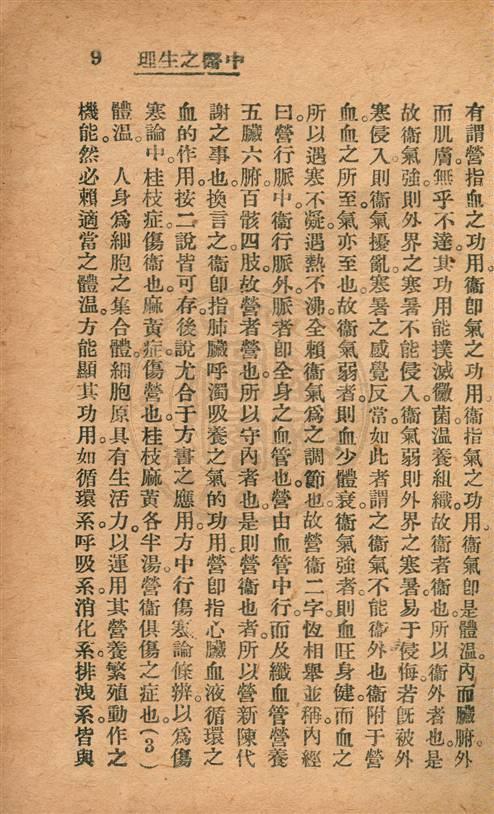 中醫之生理
9
有謂營指血之功用。衞卽氣之功用。衞指氣之功用。衞氣卽是體溫。內而臟腑。外
而肌膚。無乎不達。其功用能撲滅黴菌。溫養組織。故衞者衞也。所以衞外者也。是
故衞氣强則外界之寒暑不能侵入。衞氣弱則外界之寒暑易于侵悔。若旣被外
寒侵入。則衞氣擾亂。寒暑之感覺反常。如此者謂之衞氣不能衞外也。衞附于營
血。血之所至。氣亦至也。故衞氣弱者。則血少體衰。衞氣强者。則血旺身健。而血之
所以遇寒不凝。遇熱不沸。全賴衞氣爲之調節也。故營衞二字。恆相舉並稱。內經
曰。營行脈中。衞行脈外。脈者卽全身之血管也。營由血管中行。而及纖血管。營養
五臟六腑百骸四肢。故營者營也。所以守內者也。是則營衞也者。所以營新陳代
謝之事也。換言之。衞卽指肺臟呼濁吸養之氣的功用。營卽指心臟血液循環之
血的作用。按二說皆可存。後說尤合于方書之應用。方中行傷寒論條辨。以爲傷
寒論中。桂枝症。傷衞也。麻黄症。傷營也。桂枝麻黄各半湯。營衞俱傷之症也。(3)
體溫。 人身爲細胞之集合體。細胞原具有生活力。以運用其營養繁殖動作之
機能。然必賴適當之體溫。方能顯其功用。如循環系。呼吸系。消化系。排洩系。皆與